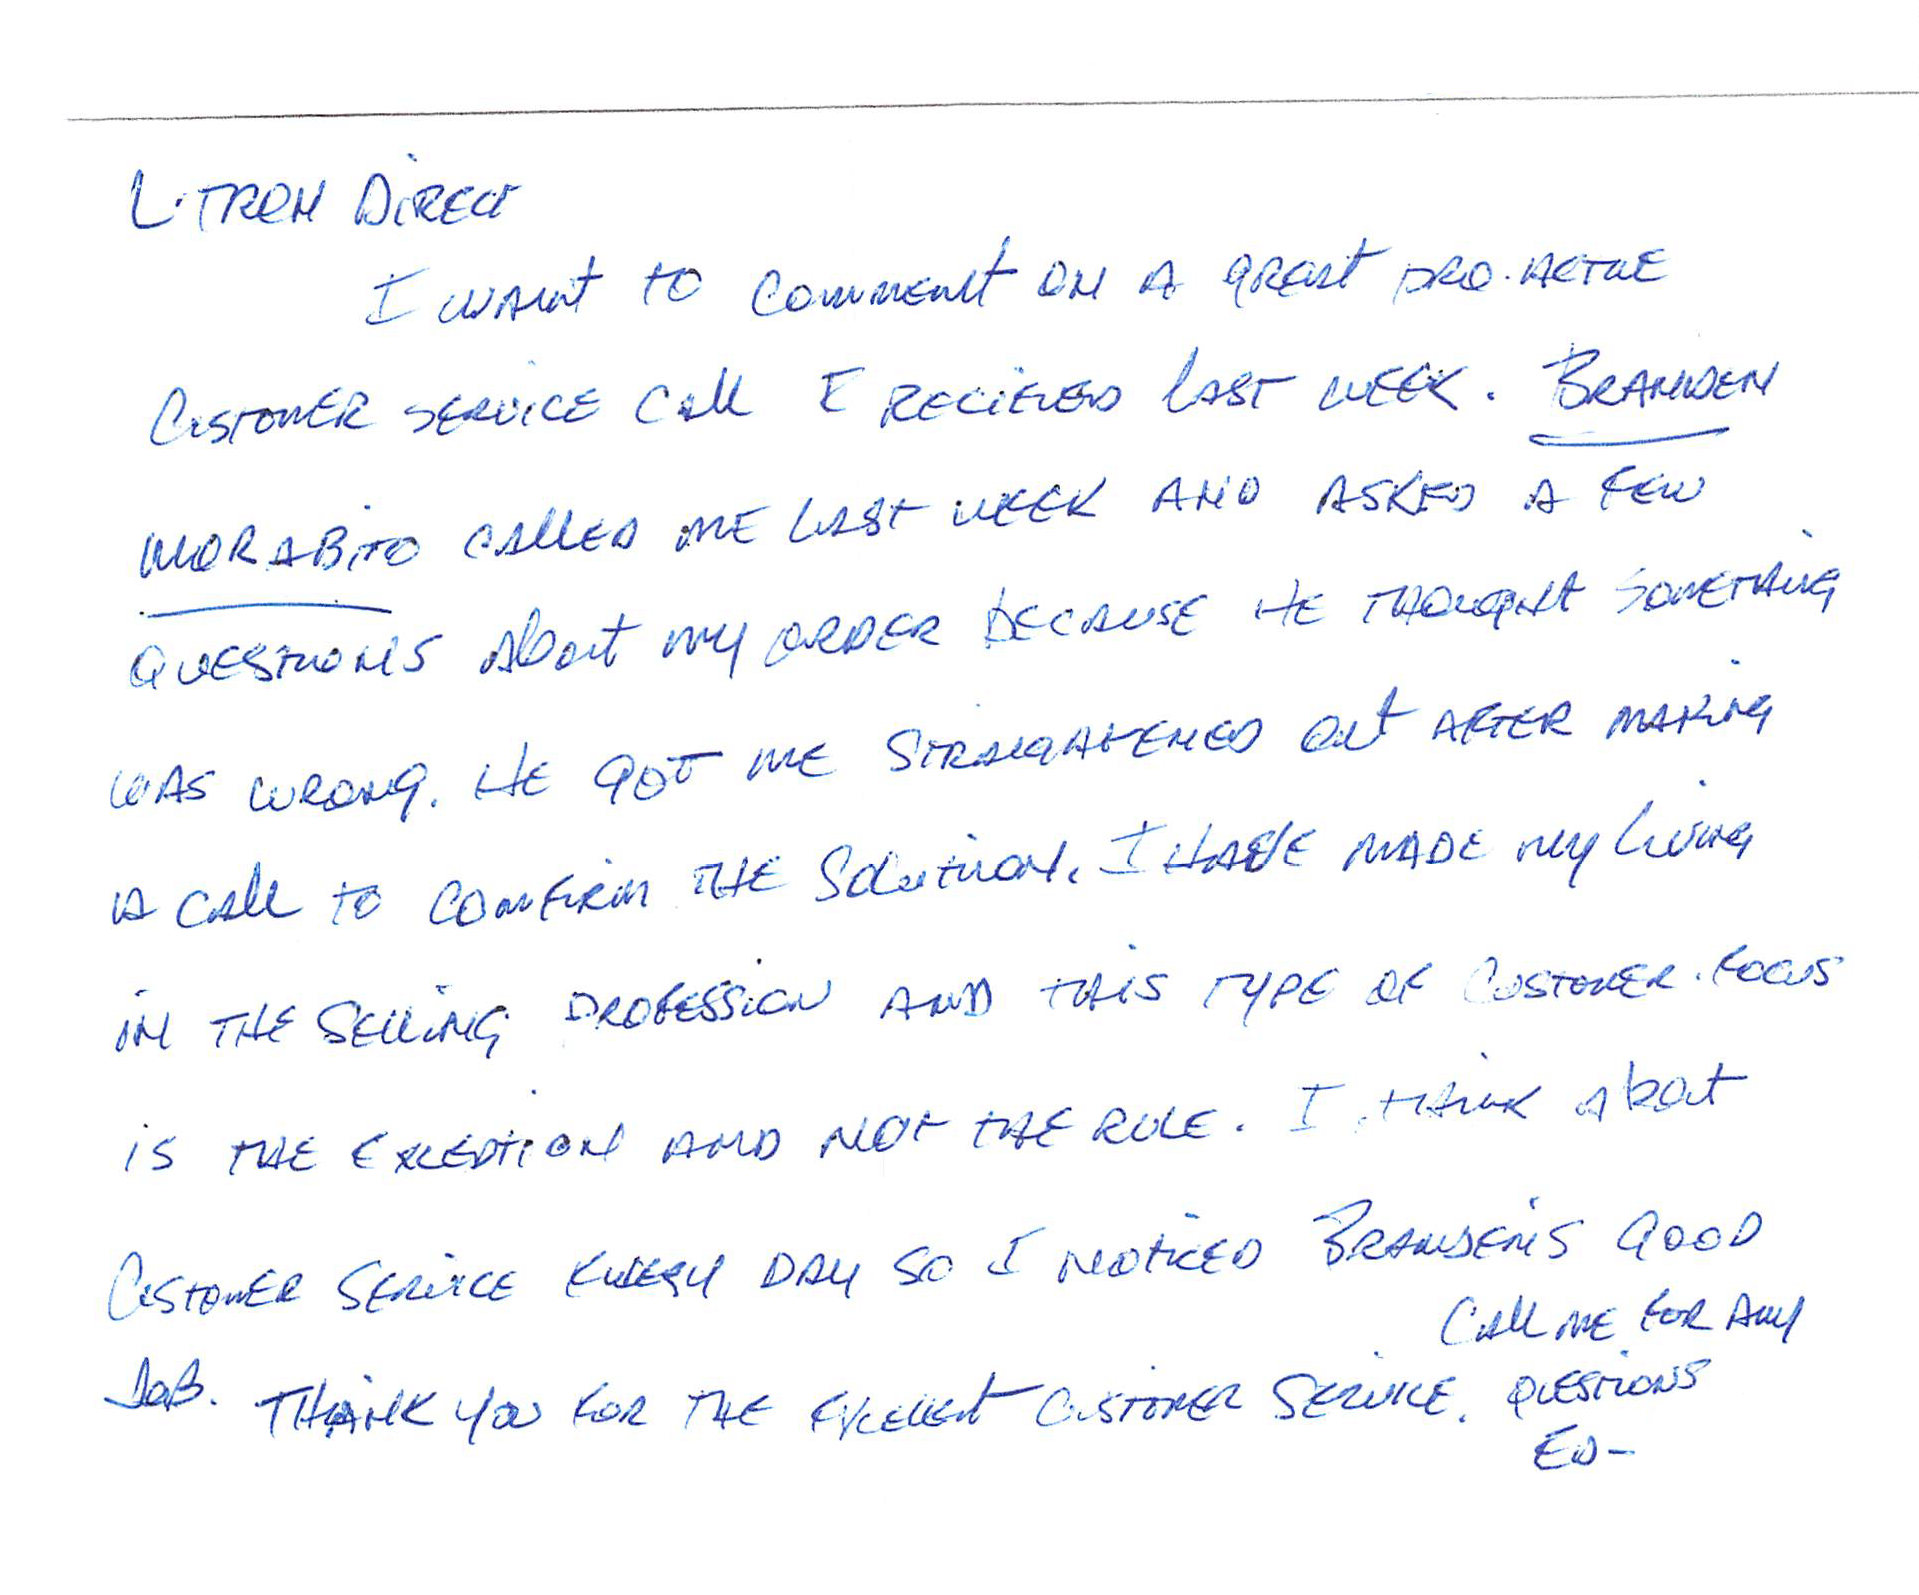 L-TRON DIRECT
I WANT TO COMMENT ON A GREAT PRO-ACTIVE
CUSTOMER SERVICE CALL I RECIEVED LAST WEEK. BRANDEN
MORABITO CALLED ME LAST WEEK AND ASKED A FEW
QUESTIONS ABOUT MY ORDER BECAUSE HE THOUGHT SOMETHING
WAS WRONG. HE GOT ME STRAIGHTENED OUT AFTER MAKING
A CALL TO CONFIRM THE SOLUTION. I HAVE MADE MY LIVING
IN THE SELLING PROFESSION AND THIS TYPE OF CUSTOMER-FOCUS
IS THE EXCEPTION AND NOT THE RULE. I THINK ABOUT
CUSTOMER SERVICE EVERY DAY SO I NOTICED BRANDEN'S GOOD
JOB. THANK YOU FOR THE EXCELLENT CUSTOMER SERVICE.
CALL ME FOR ANY
QUESTIONS
ED-